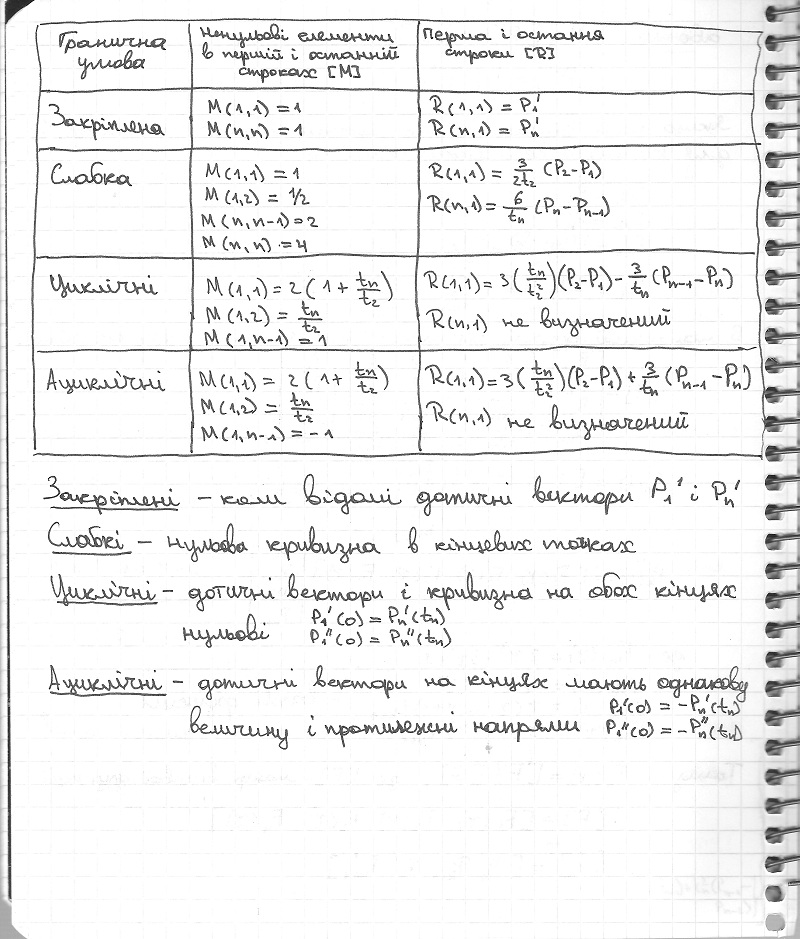 Гранична умова
ненульові елементи в першій і останній строках [M]
Перша і остання строки [R]
Закріплена
M(1,1) = 1
M(n,n) = 1
R(1,1) = P₁'
R(n,1) = Pₙ'
Слабка
M(1,1) = 1
M(1,2) = 1/2
M(n,n-1) = 2
M(n,n) = 4
R(1,1) = 3/2t₂ (P₂-P₁)
R(n,1) = 6/tₙ (Pₙ-Pₙ₋₁)
Циклічні
M(1,1) = 2(1 + tₙ/t₂)
M(1,2) = tₙ/t₂
M(1,n-1) = 1
R(1,1) = 3(tₙ/t₂²)(P₂-P₁) - 3/tₙ (Pₙ₋₁-Pₙ)
R(n,1) не визначений
Ациклічні
M(1,1) = 2(1 + tₙ/t₂)
M(1,2) = tₙ/t₂
M(1,n-1) = -1
R(1,1) = 3(tₙ/t₂²)(P₂-P₁) + 3/tₙ (Pₙ₋₁-Pₙ)
R(n,1) не визначений
Закріплені – коли відомі дотичні вектори P₁' і Pₙ'
Слабкі – нульова кривизна в кінцевих точках
Циклічні – дотичні вектори і кривизна на обох кінцях
нульові P₁'(0) = Pₙ'(tₙ)
P₁''(0) = Pₙ''(tₙ)
Ациклічні – дотичні вектори на кінцях мають однакову
величину і протилежні напрями P₁'(0) = -Pₙ'(tₙ)
P₁''(0) = -Pₙ''(tₙ)